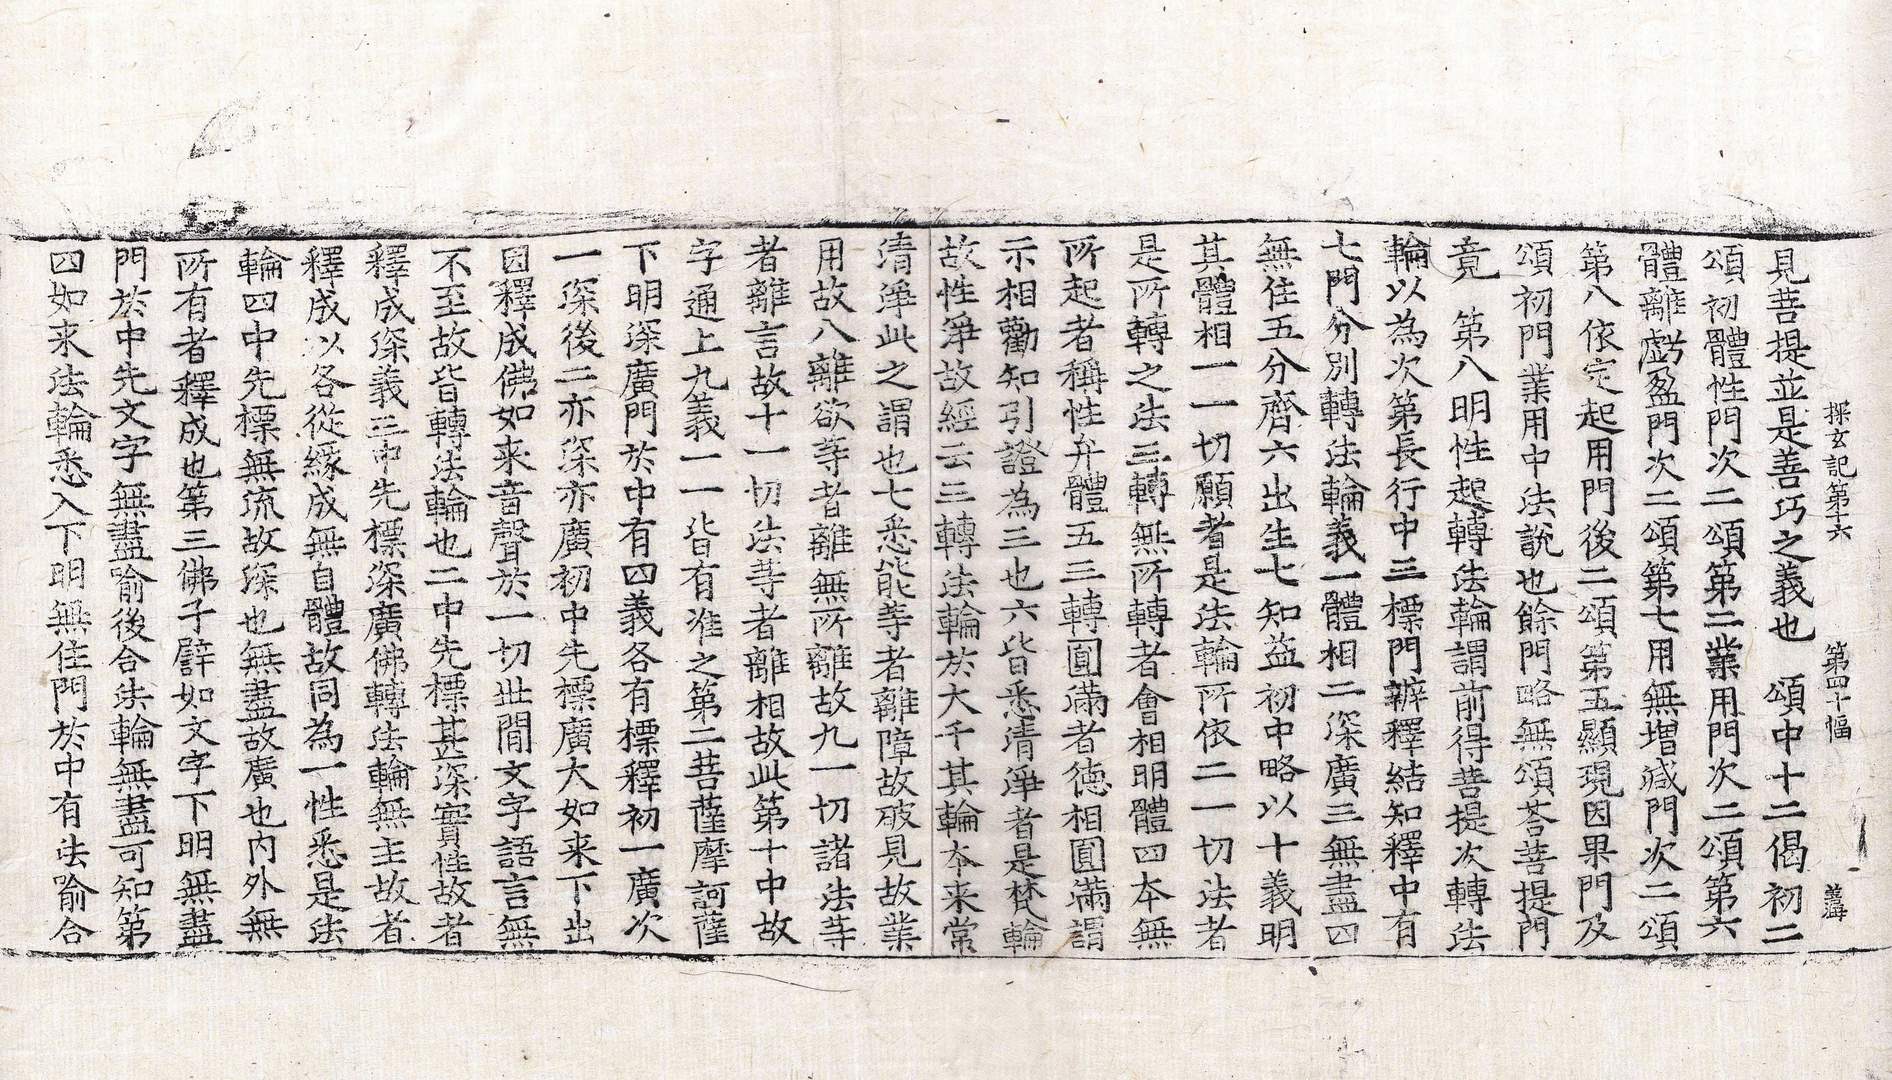 探玄記第十六　第四十幅　義海
見菩提並是善巧之義也　頌中十二偈初二
頌初體性門次二頌第二業用門次二頌第六
體離虧盈門次二頌第七用無増減門次二頌
第八依定起用門後二頌第五顯現因果門及
頌初門業用中法說也餘門略無頌荅菩提門
竟　第八明性起轉法輪謂前得菩提次轉法
輪以為次第長行中三標門辨釋結知釋中有
七門分別轉法輪義一體相二深廣三無盡四
無住五分齊六出生七知益初中略以十義明
其體相一一切願者是法輪所依二一切法者
是所轉之法三轉無所轉者會相明體四本無
所起者稱性弁體五三轉圓滿者德相圓滿謂
示相勸知引證為三也六皆悉清淨者是梵輪
故性淨故經云三轉法輪於大千其輪本来常
清淨此之謂也七悉能等者離障故破見故業
用故八離欲等者離無所離故九一切諸法等
者離言故十一切法等者離相故此第十中故
字通上九義一一皆有准之第二菩薩摩訶薩
下明深廣門於中有四義各有標釋初一廣次
一深後二亦深亦廣初中先標廣大如来下出
因釋成佛如来音聲於一切世間文字語言無
不至故皆轉法輪也二中先標甚深實性故者
釋成深義三中先標深廣佛轉法輪無主故者
釋成以各從緣成無自體故同為一性悉是法
輪四中先標無流故深也無盡故廣也内外無
所有者釋成也第三佛子譬如文字下明無盡
門於中先文字無盡喻後合法輪無盡可知第
四如来法輪悉入下明無住門於中有法喻合